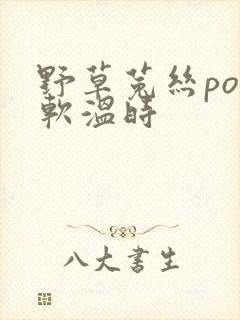 野草菟絲po
軟溫時
八大書生